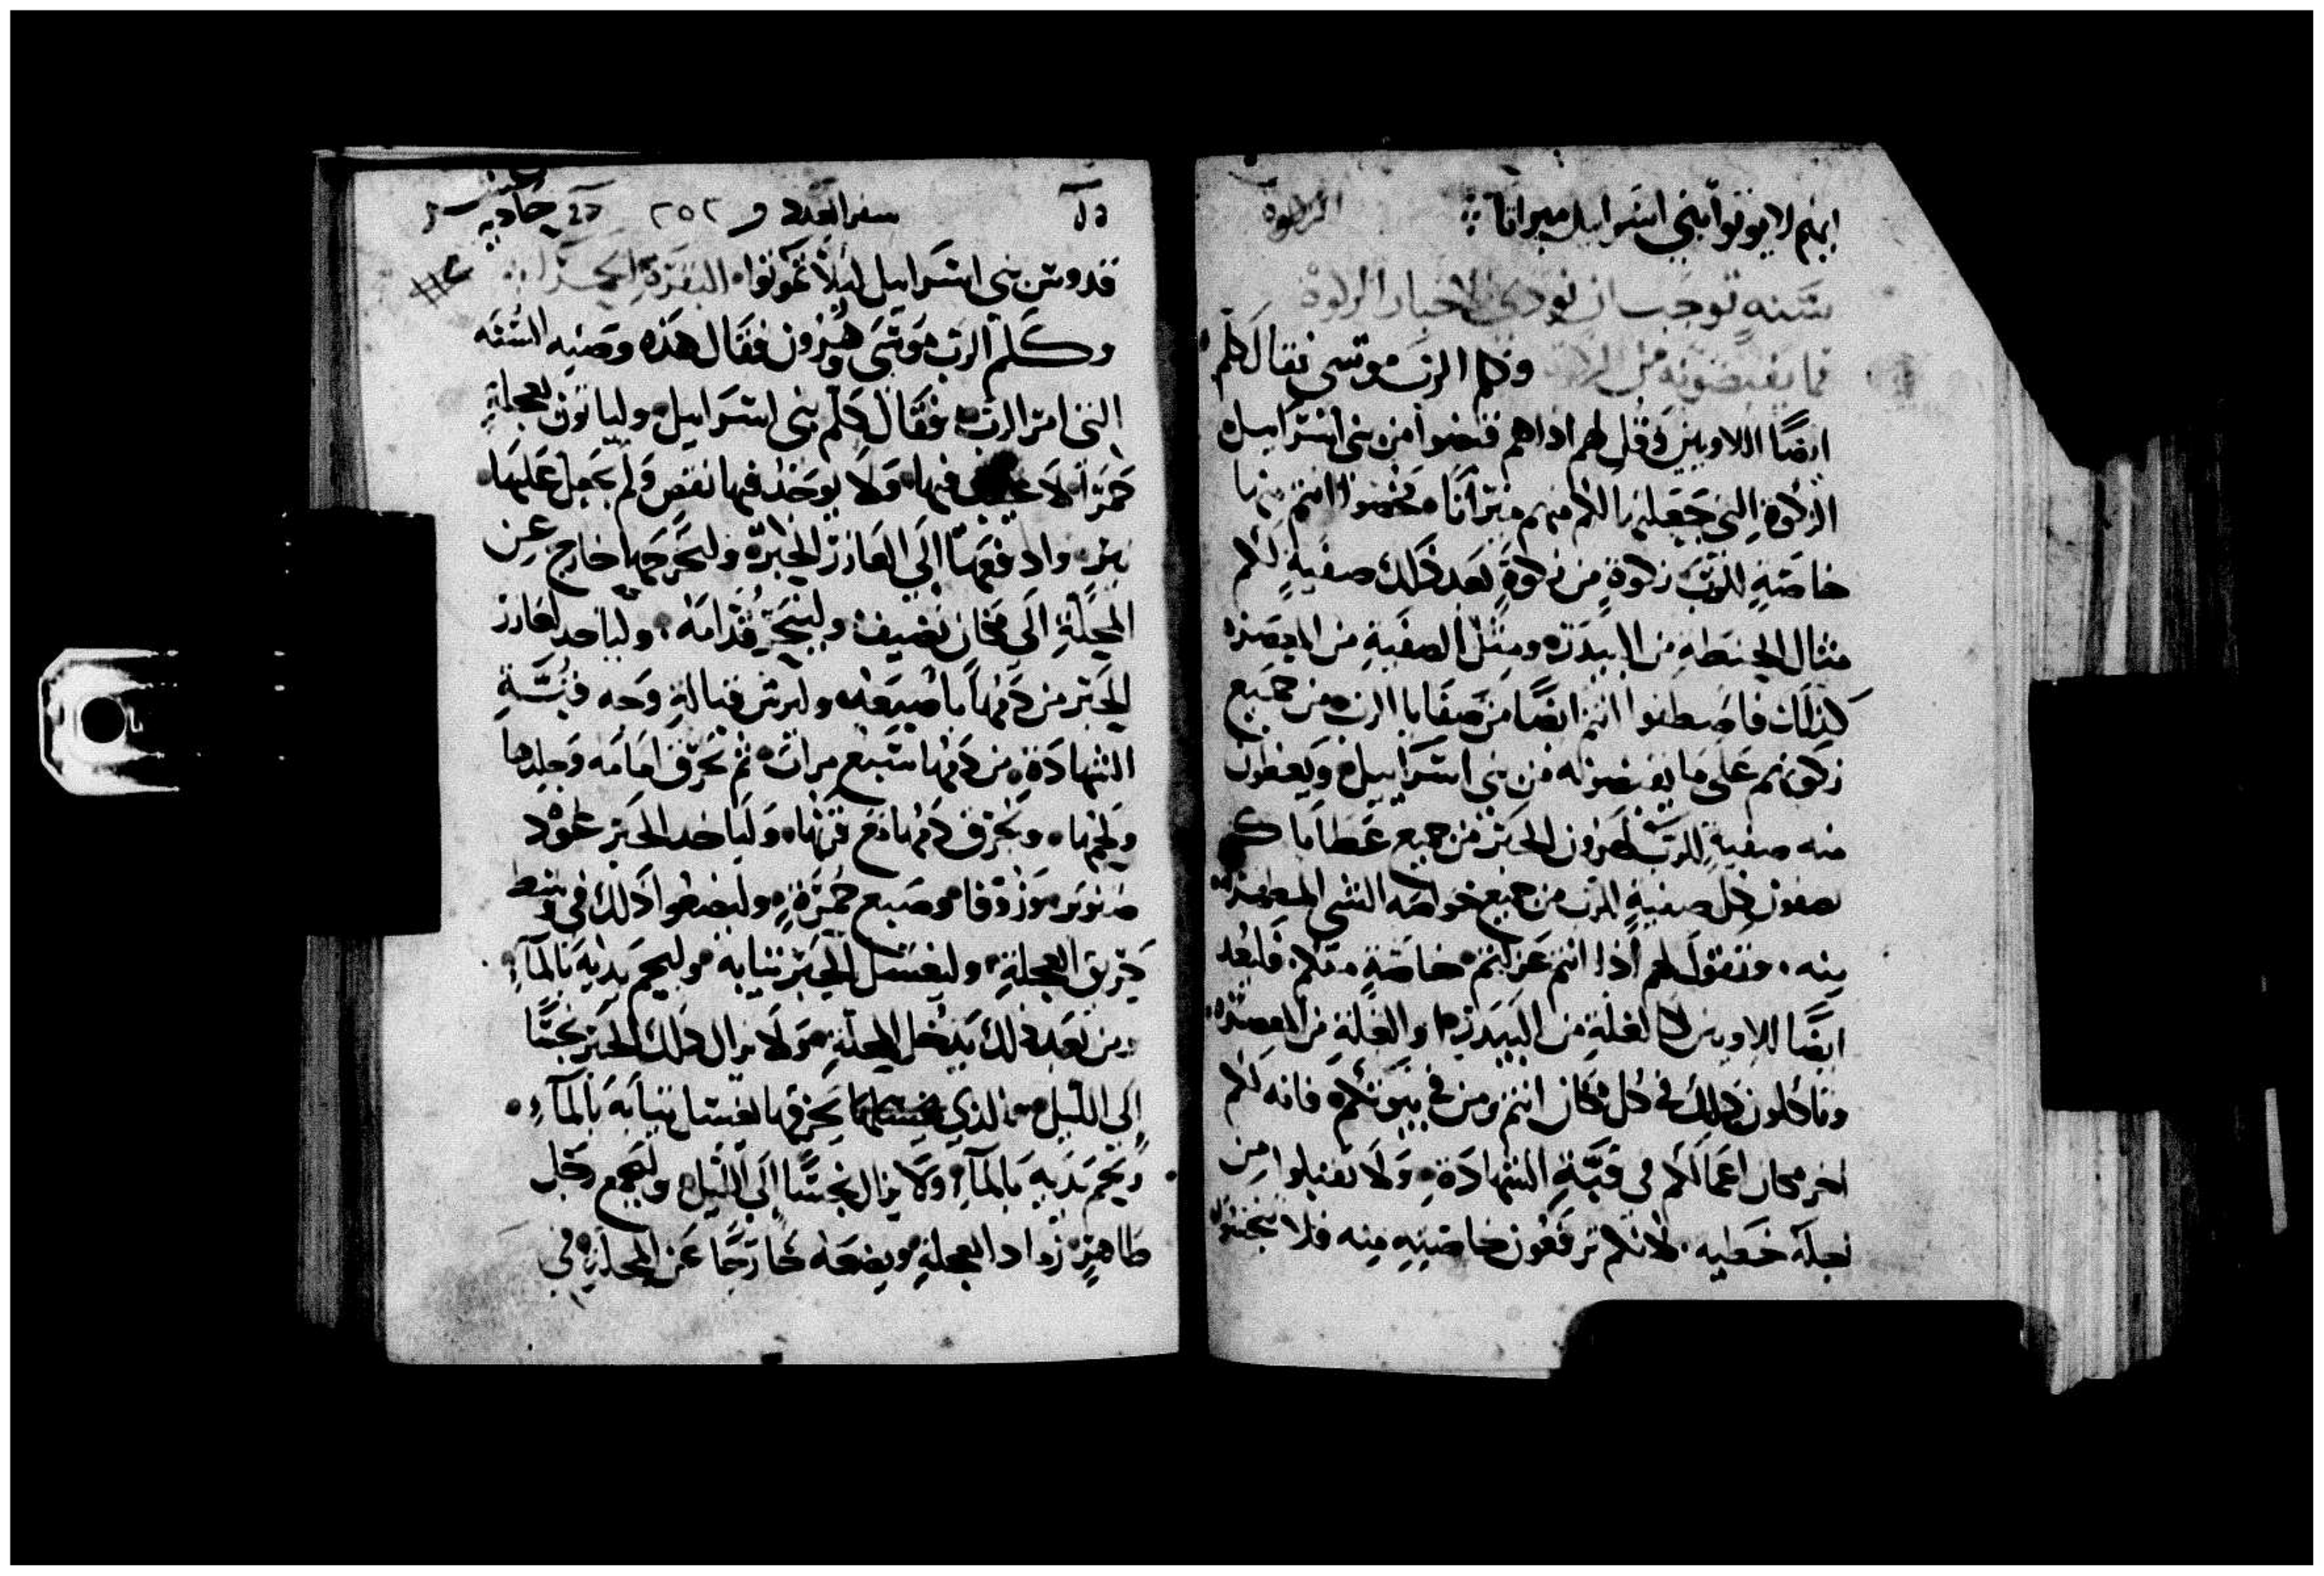 انهم لا يوتوا بني اسراييل ميراثا الزكوة
سنه توجب ان نودي الاحبار الزكوة
مما يقبضونه من الزكوة وكلم الرب موسى فقال كلم
ايضًا اللاويين وقل لهم اذا هم قبضوا من بني اسراييل
الزكوة التي جعلتها لكم منهم ميراثا فخصوا انتم منها
خاصةٍ للرب زكوةٍ من زكوةٍ بعد ذلك صفيةٍ لكم
مثال الحنطه من البيدره ومثل الصفيةِ من المعصره
كذلك فاصطفوا انتم ايضًا من صفايا الرب من جميع
زكوتكم على ما يقبضونه من بني اسراييل ويعطون
منه صفيةٍ للرب لهرون الحبر من جميع عطاياكم
تصفون كل صفيةٍ للرب من جميع خواصه الشي المطهر
منه وتقول لهم اذا انتم عزلتم خاصةٍ منكم فليعد
ايضًا للاويين كالغلةِ من البيدره والغلةِ من المعصره
وتاكلون ذلك في كل مكان انتم ومن في بيوتكم فانه لكم
اجر مكان اعمالكم في قبةِ الشهادةِ ولا تقبلوا من
اجله خطيه لانكم ترفعون خاصيتهِ منه فلا تنجسوا
سفر العدد و ٢٥٢
قدوس بني اسراييل ليلا تموتوا البقرة الحمرا
وكلم الرب موسى وهرون فقال هذه وصيه السنه
التي امر الرب فقال كلم بني اسراييل ولياتون بعجلةٍ
حمرا لا عيب فيها ولا يوجد فيها نقص ولم يجعل عليها
نير وادفعها الى العازر الحبر وليخرجها خارج عن
المحلةِ الى مكان نضيف ولينحر قدامه ولياخد لعازر
الحبر من دمها باصبعه ولير قبالةِ وجه قبةِ
الشهادةِ من دمها سبع مرات ثم تحرق امامه وجلدها
ولحمها ويحرق دمها مع فرثها ولياخد الحبر عود
صنوبر وزوفا وصبع حمرةٍ وليضعوا ذلك في وسط
حريق العجلةِ وليغسل الحبر ثيابه وليحم بدنه بالمآءِ
ومن بعد ذلك يدخل المحلةِ ولا يزال ذلك الحبر نجسًا
الى الليل والذي يحرقها يغسل ثيابه بالمآءِ
ويحم بدنه بالمآءِ ولا يزال نجسًا الى الليل وليجمع رجل
طاهر رماد العجلةِ ويضعه خارجًا عن المحلةِ في